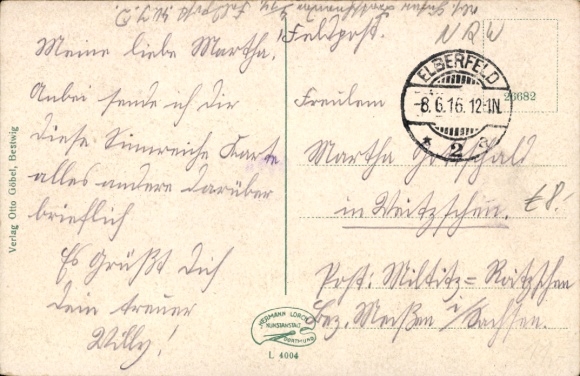 Meine liebe Martha!
Anbei sende ich dir
diese Sinnreiche Karte
alles andere darüber
brieflich
Es Grüßt Dich
dein treuer
Willy!
Feldpost.
NRW
ELBERFELD
-8.6.16.12-1N.
* 2 a
26682
Fräulein
Martha Gottschald
in Weitzschen.
£8.-
Post: Miltitz=Roitzschen
Bez. Meißen i/Sachsen.
Verlag Otto Göbel, Bestwig
HERMANN LORCH
KUNSTANSTALT
DORTMUND
L 4004